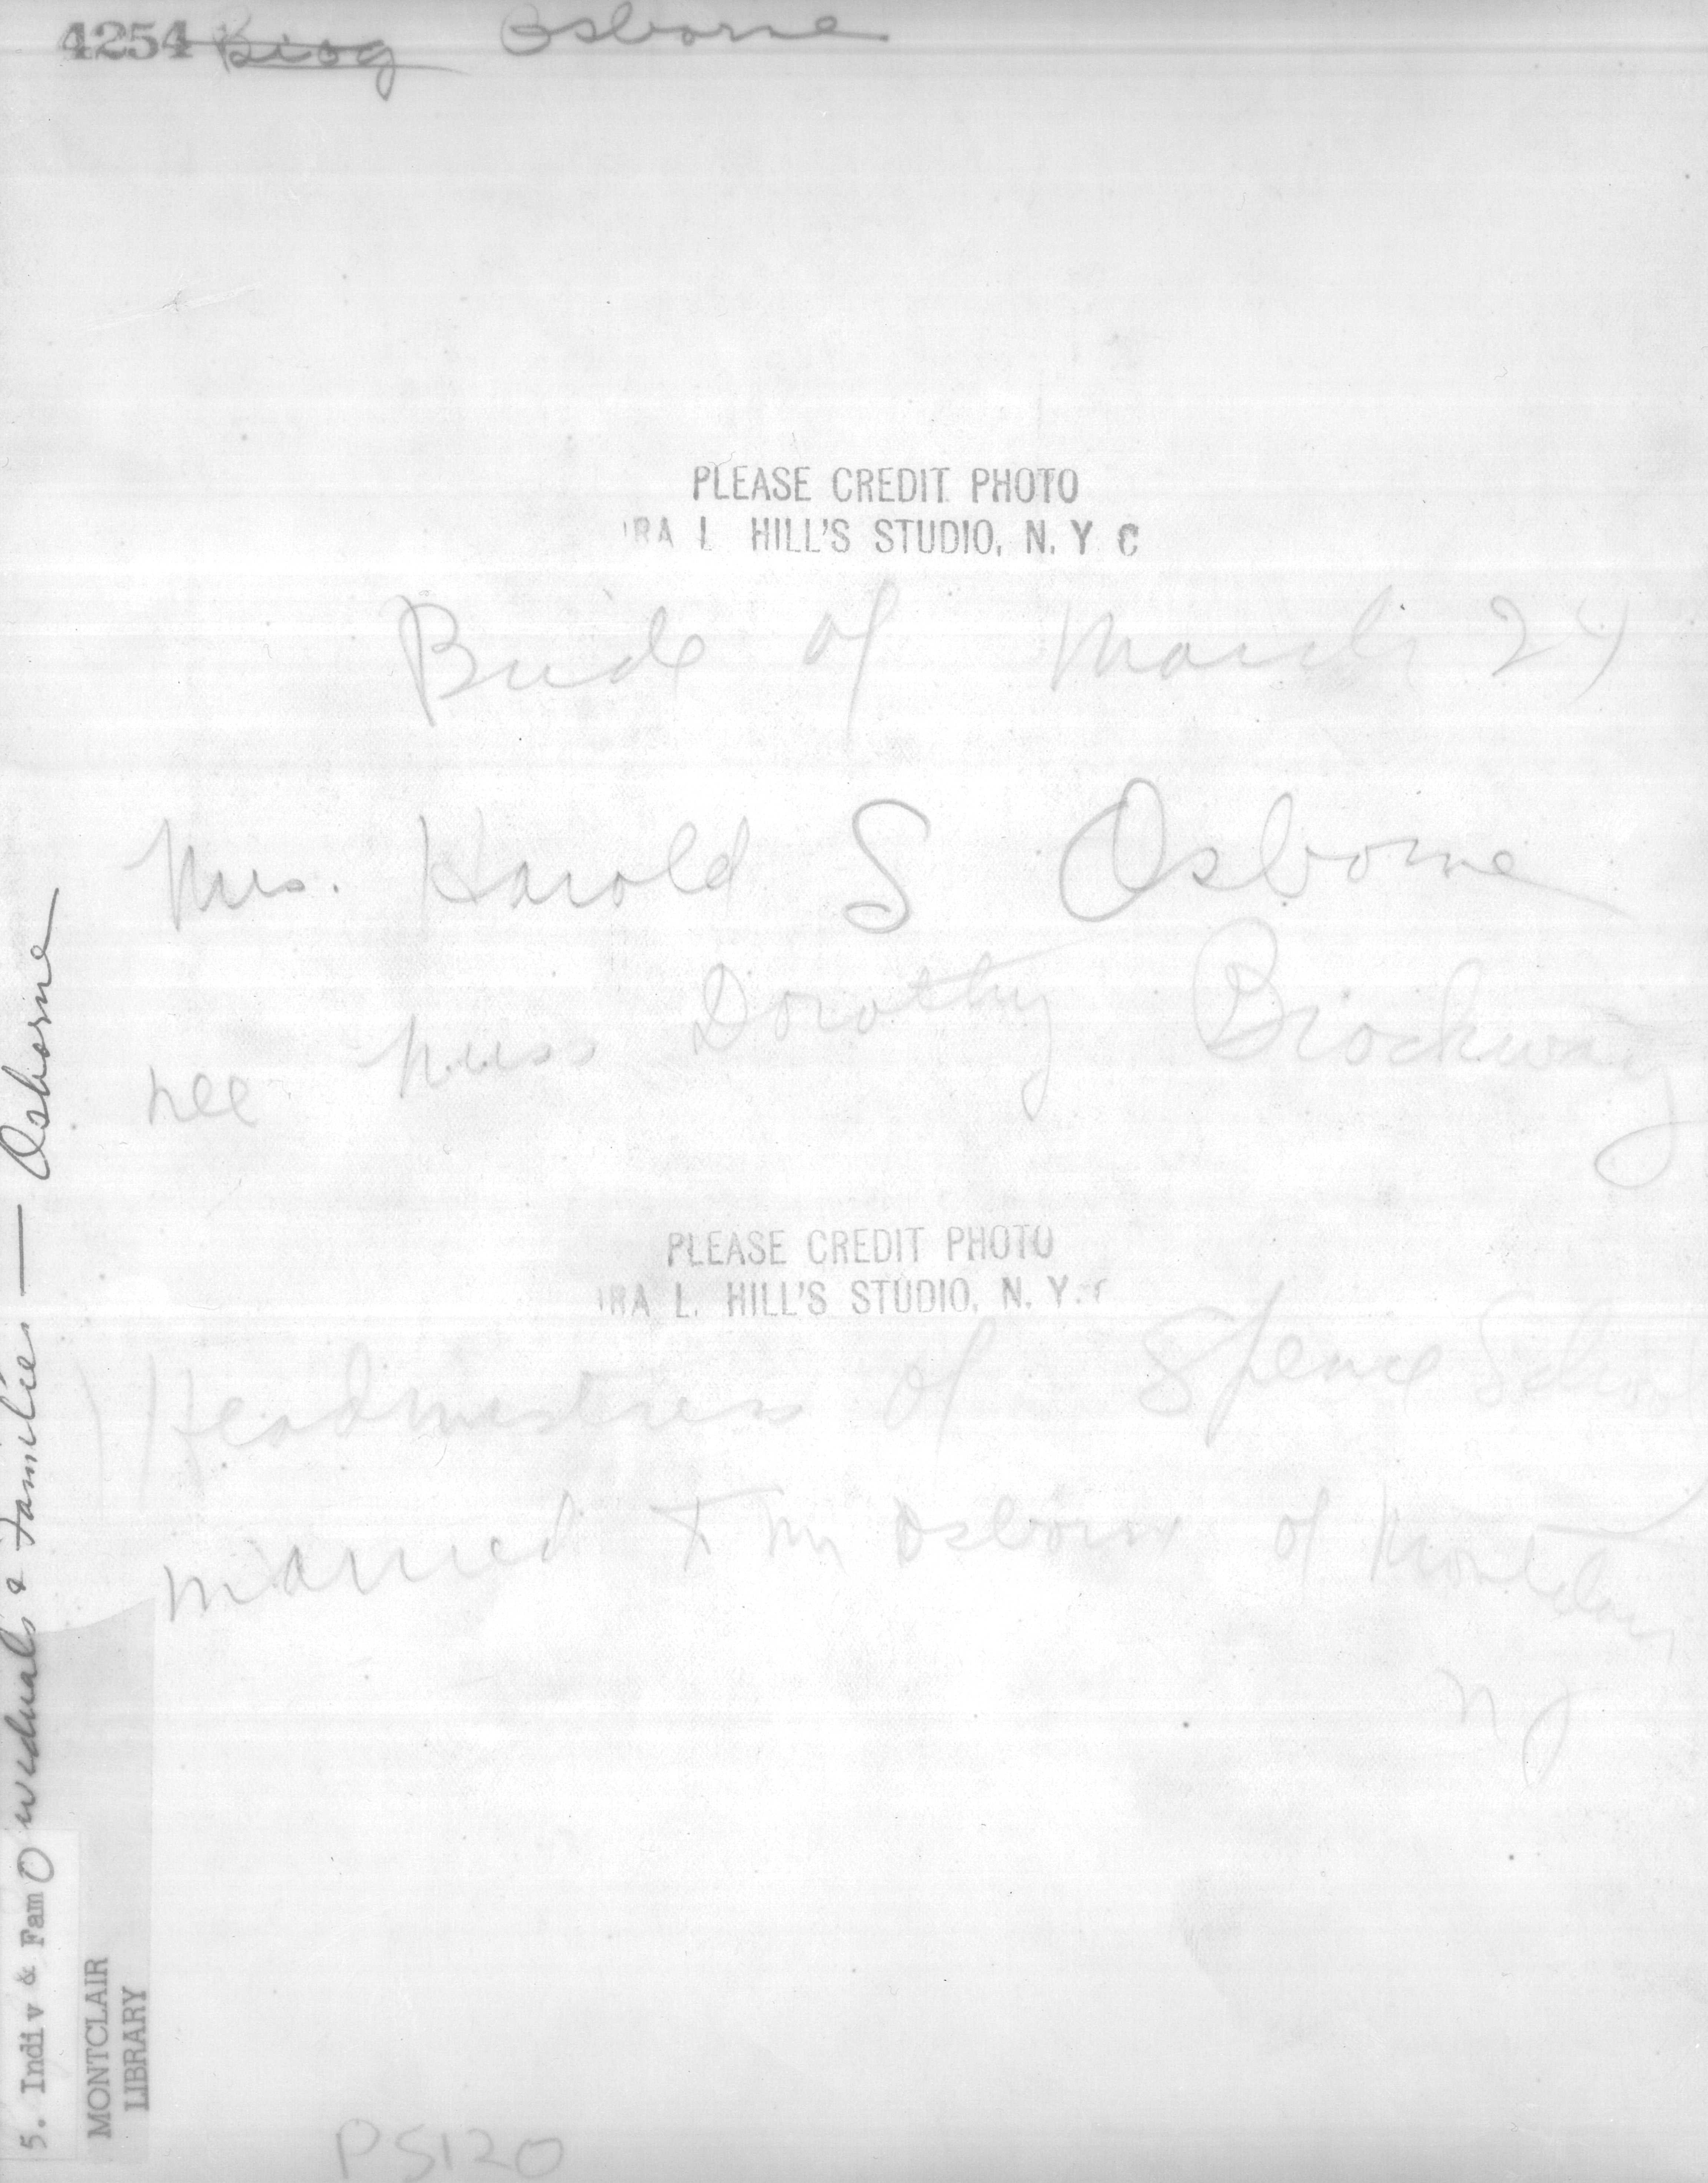 4254 Biog Osborne
PLEASE CREDIT PHOTO
IRA L HILL'S STUDIO, N. Y C
Bride of March 24
Mrs. Harold S Osborne
nee Miss Dorothy Brockway
PLEASE CREDIT PHOTO
IRA L. HILL'S STUDIO, N. Y. C
Headmistress of Spence School
married to Mr Osborne of Montclair
NJ
PS120
5. Indiv & Fam
Individuals & Families — Osborne
MONTCLAIR
LIBRARY